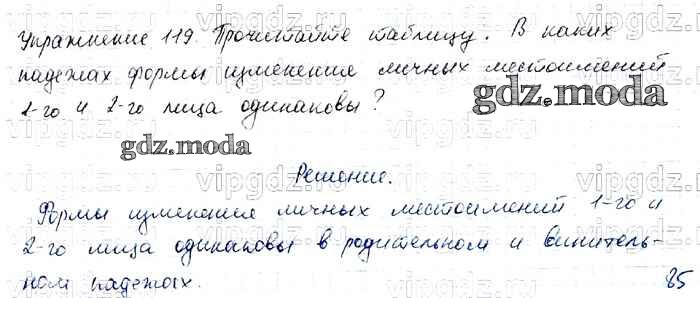 Упражнение 119. Прочитайте таблицу. В каких
падежах формы изменения личных местоимений
1-го и 2-го лица одинаковы?
gdz.moda
gdz.moda
Решение.
Формы изменения личных местоимений 1-го и
2-го лица одинаковы в родительном и винитель-
ном падежах.
85